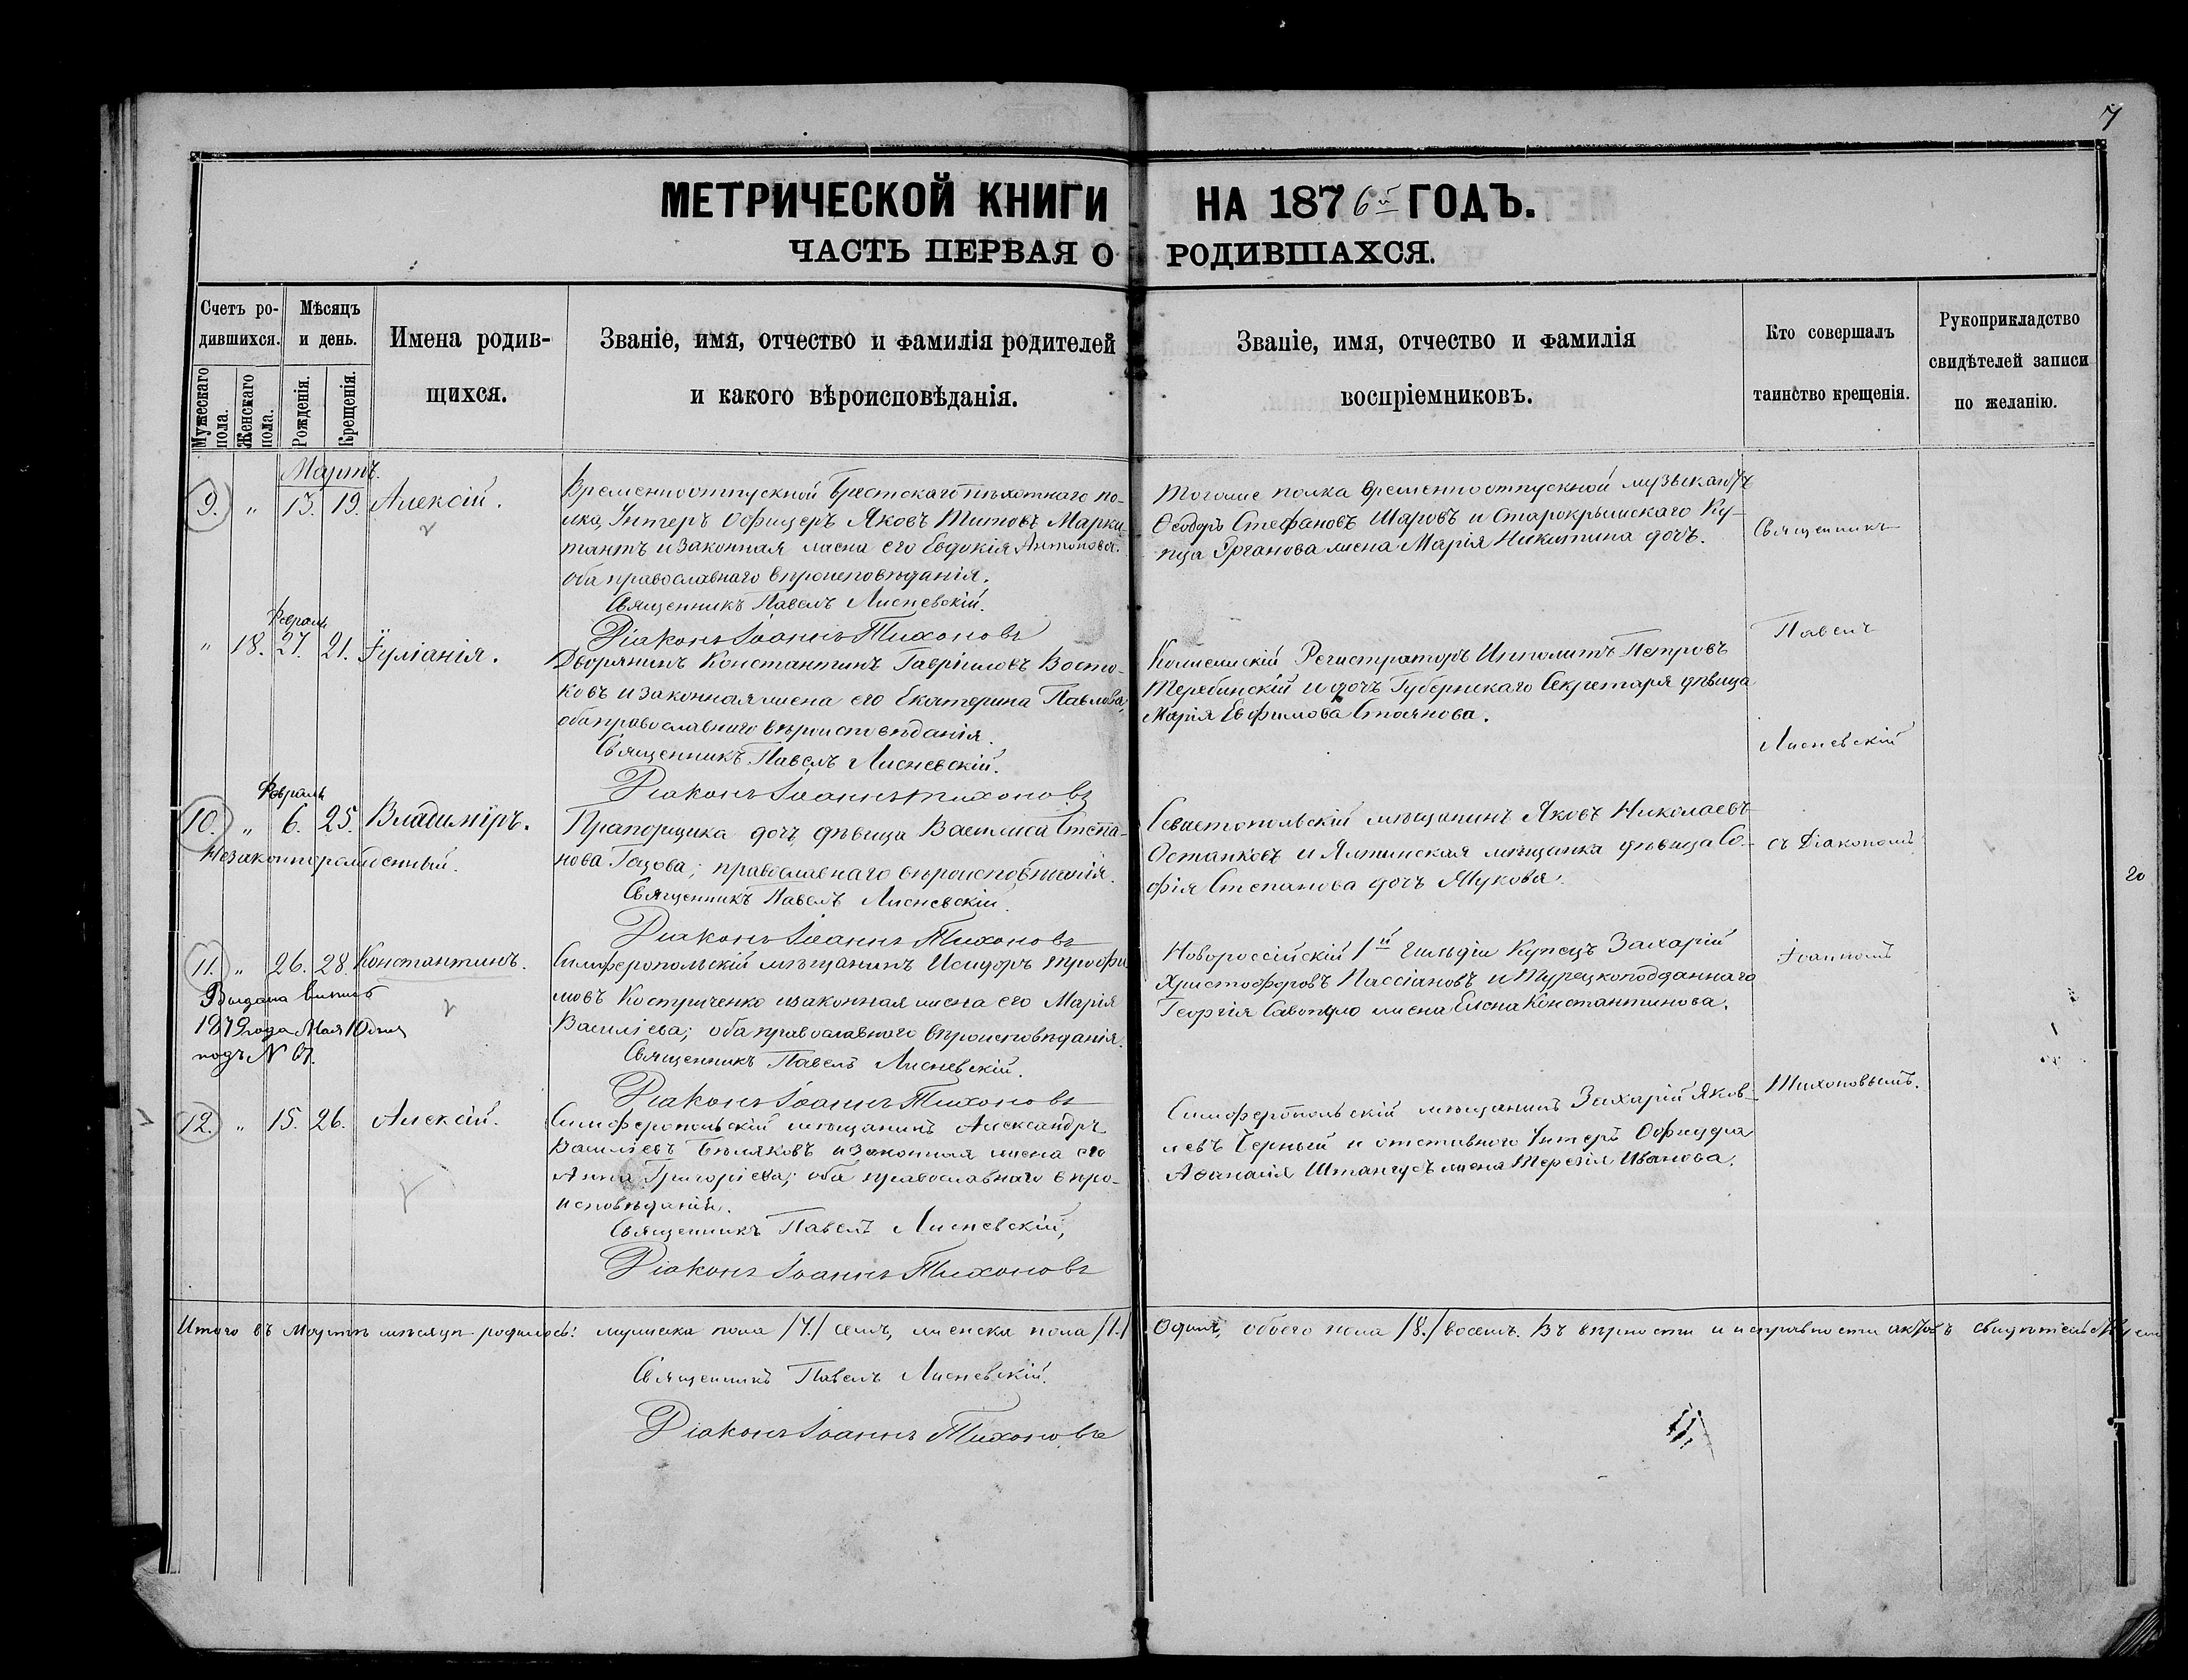 7
МЕТРИЧЕСКОЙ КНИГИ НА 1876й ГОДЪ.
ЧАСТЬ ПЕРВАЯ О РОДИВШАХСЯ.
Счетъ ро-
дившихся.
Мужескаго пола.
Женскаго пола.
Мѣсяцъ
и день.
Рожденія.
Крещенія.
Имена родив-
щихся.
Званіе, имя, отчество и фамилія родителей
и какого вѣроисповѣданія.
Званіе, имя, отчество и фамилія
воспріемниковъ.
Кто совершалъ
таинство крещенія.
Рукоприкладство
свидѣтелей записи
по желанію.
Мартъ.
9. " 13. 19. Алексій.
Временноотпускной Брестскаго пѣхотнаго по-
лка, Унтеръ Офицеръ Яковъ Титовъ
и законная жена его Евдокія Антонова.
оба православнаго вѣроисповѣданія.
Священникъ Павелъ Лисневскій.
Діаконъ Іоаннъ Тихоновъ
Тогоже полка временноотпускной музыкантъ
Ѳеодоръ Стефановъ Шаровъ и Старокрымскаго Ку-
пца Органова жена Марія Никитина дочь.
Священникъ
Февраль
" 18. 27. 21. Іуліанія.
Дворянинъ Константинъ Гавріиловъ Восто-
ковъ и законная жена его Екатерина Павлова,
оба православнаго вѣроисповѣданія.
Священникъ Павелъ Лисневскій.
Діаконъ Іоаннъ Тихоновъ
Коллежскій Регистраторъ Ипполитъ Петровъ
Теребинскій и дочь Губернскаго Секретаря дѣвица
Марія Евфимова Стоянова.
Павелъ
Лисневскій
Февраль
10. " 6. 25. Владиміръ.
Незаконнорожденный.
Прапорщика дочь дѣвица Василиса Степа-
нова Гоцова; православнаго вѣроисповѣданія.
Священникъ Павелъ Лисневскій.
Діаконъ Іоаннъ Тихоновъ
Севастопольскій мѣщанинъ Яковъ Николаевъ
Останковъ и Ялтинская мѣщанка дѣвица Со-
фія Степанова дочь Жукова.
съ Діакономъ
20
11. " 26. 28. Константинъ.
Выдана выпись
1879 года Мая 10 дня
подъ № 67.
Симферопольскій мѣщанинъ Исидоръ Трофи
мовъ Костриченко и законная жена его Марія
Василіева; оба православнаго вѣроисповѣданія.
Священникъ Павелъ Лисневскій.
Діаконъ Іоаннъ Тихоновъ
Новороссійскій 1й гильдіи Купецъ Захарій
Христофоровъ Пассіановъ и Турецкоподданнаго
Георгія Савопуло жена Елена Константинова.
Іоанномъ
Тихоновымъ.
12. " 15. 26. Алексій.
Симферопольскій мѣщанинъ Александръ
Василіевъ Бѣляковъ и законная жена его
Анна Григоріева; оба православнаго вѣро-
исповѣданія.
Священникъ Павелъ Лисневскій,
Діаконъ Іоаннъ Тихоновъ
Симферопольскій мѣщанинъ Захарій Яков-
левъ Черный и отставнаго Унтеръ Офицера
Аѳанасія Штангусъ жена Терезія Иванова.
Итого въ Мартѣ мѣсяцѣ родилось: мужеска пола /7./ семь, женска пола /1./ Одинъ, обоего пола /8./ восемь. Въ вѣрности и исправности актовъ
Священникъ Павелъ Лисневскій.
Діаконъ Іоаннъ Тихоновъ